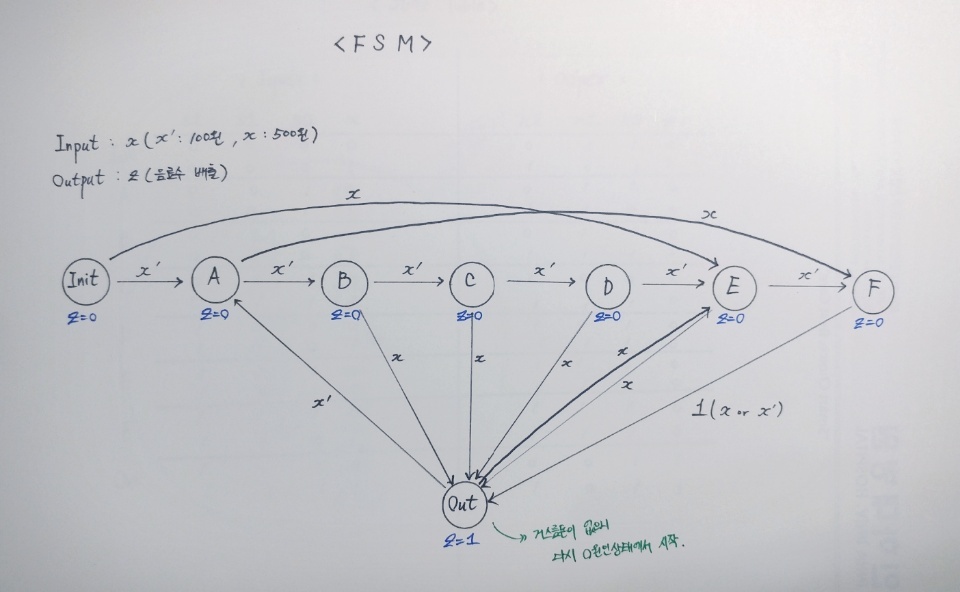 <FSM>
Input : x ( x' : 100원 , x : 500원 )
Output : z (음료수 배출 )
x
x
Init
x'
A
x'
B
x'
C
x'
D
x'
E
x'
F
z=0
z=0
z=0
z=0
z=0
z=0
z=0
x'
x
x
x
x
x
1 ( x or x' )
Out
z=1
거스름돈이 없으니
다시 0원인상태에서 시작.